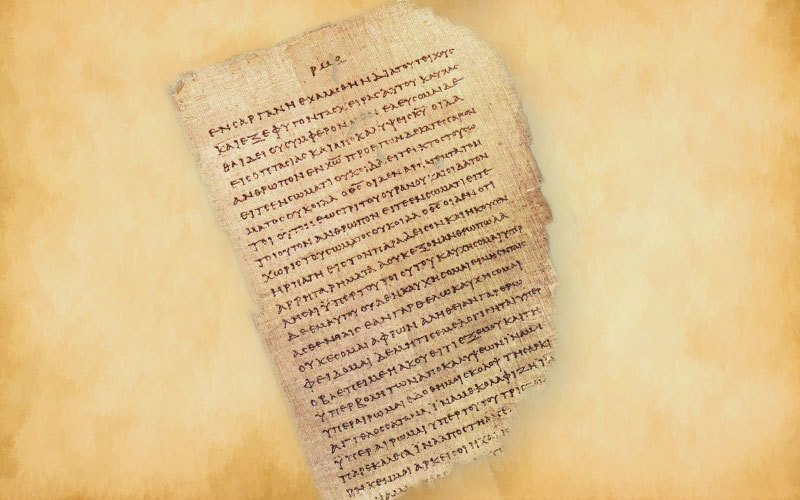 ΕΝ ϹΑΡΓΑΝΗ ΕΧΑΛΑϹΘΗΝ ΔΙΑ ΤΟΥ ΤΕΙΧΟΥϹ
ΚΑΙ ΕΞΕΦΥΓΟΝ ΤΑϹ ΧΕΙΡΑϹ ΑΥΤΟΥ ΚΑΥΧΑϹ
ΘΑΙ ΔΕΙ ΟΥ ϹΥΜΦΕΡΟΝ ΜΕΝ ΕΛΕΥϹΟΜΑΙ ΔΕ
ΕΙϹ ΟΠΤΑϹΙΑϹ ΚΑΙ ΑΠΟΚΑΛΥΨΕΙϹ ΚΥ ΟΙΔΑ
ΑΝΘΡΩΠΟΝ ΕΝ ΧΩ ΠΡΟ ΕΤΩΝ ΔΕΚΑΤΕϹϹΑΡΩΝ
ΕΙΤΕ ΕΝ ϹΩΜΑΤΙ ΟΥΚ ΟΙΔΑ ΕΙΤΕ ΕΚΤΟϹ ΤΟΥ ϹΩ
ΜΑΤΟϹ ΟΥΚ ΟΙΔΑ Ο ΘϹ ΟΙΔΕΝ ΑΡΠΑΓΕΝΤΑ ΤΟΝ
ΤΟΙΟΥΤΟΝ ΕΩϹ ΤΡΙΤΟΥ ΟΥΡΑΝΟΥ ΚΑΙ ΟΙΔΑ ΤΟΝ
ΤΟΙΟΥΤΟΝ ΑΝΘΡΩΠΟΝ ΕΙΤΕ ΕΝ ϹΩΜΑΤΙ ΕΙΤΕ
ΧΩΡΙϹ ΤΟΥ ϹΩΜΑΤΟϹ ΟΥΚ ΟΙΔΑ Ο ΘϹ ΟΙΔΕΝ ΟΤΙ
ΗΡΠΑΓΗ ΕΙϹ ΤΟΝ ΠΑΡΑΔΕΙϹΟΝ ΚΑΙ ΗΚΟΥϹΕΝ
ΑΡΡΗΤΑ ΡΗΜΑΤΑ Α ΟΥΚ ΕΞΟΝ ΑΝΘΡΩΠΩ ΛΑ
ΛΗϹΑΙ ΥΠΕΡ ΤΟΥ ΤΟΙΟΥΤΟΥ ΚΑΥΧΗϹΟΜΑΙ ΥΠΕΡ
ΔΕ ΕΜΑΥΤΟΥ ΟΥΔΕΝ ΚΑΥΧΗϹΟΜΑΙ ΕΙ ΜΗ ΕΝ ΤΑΙϹ
ΑϹΘΕΝΕΙΑΙϹ ΕΑΝ ΓΑΡ ΘΕΛΩ ΚΑΥΧΗϹΟΜΑΙ
ΟΥΚ ΕϹΟΜΑΙ ΑΦΡΩΝ ΑΛΗΘΕΙΑΝ ΓΑΡ ΕΡΩ
ΦΕΙΔΟΜΑΙ ΔΕ ΜΗ ΤΙϹ ΕΜΕ ΛΟΓΙϹΗΤΑΙ ΥΠΕΡ
Ο ΒΛΕΠΕΙ ΜΕ Η ΑΚΟΥΕΙ ΤΙ ΕΞ ΕΜΟΥ ΚΑΙ ΤΗ
ΥΠΕΡΒΟΛΗ ΤΩΝ ΑΠΟΚΑΛΥΨΕΩΝ ΙΝΑ ΜΗ
ΥΠΕΡΑΙΡΩΜΑΙ ΕΔΟΘΗ ΜΟΙ ϹΚΟΛΟΨ ΤΗ ϹΑΡΚΙ
ΑΓΓΕΛΟϹ ϹΑΤΑΝΑ ΙΝΑ ΜΕ ΚΟΛΑΦΙΖΗ
ΥΠΕΡΑΙΡΩΜΑΙ ΥΠΕΡ ΤΟΥΤΟΥ ΤΡΙϹ
ΠΑΡΕΚΑΛΕϹΑ ΙΝΑ ΑΠΟϹΤΗ
ΡΗΚΕΝ ΜΟΙ ΑΡΚΕΙ ϹΟΙ Η ΧΑ